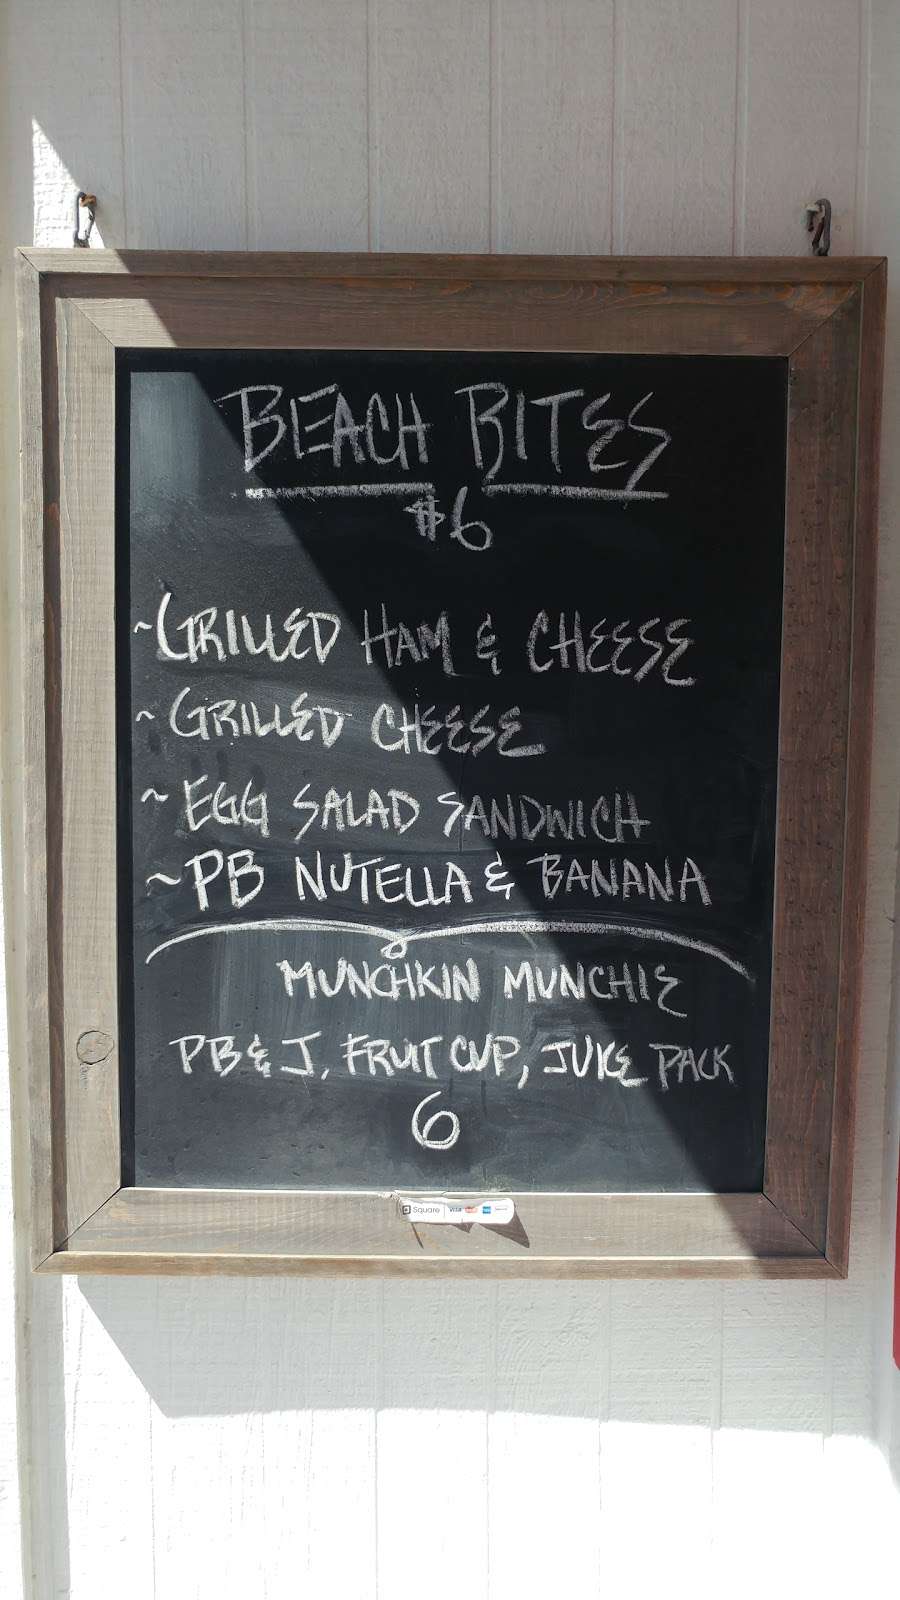 BEACH BITES
$6
~GRILLED HAM & CHEESE
~ GRILLED CHEESE
~ EGG SALAD SANDWICH
~PB NUTELLA & BANANA
MUNCHKIN MUNCHIE
PB & J, FRUIT CUP, JUICE PACK
6
Square VISA